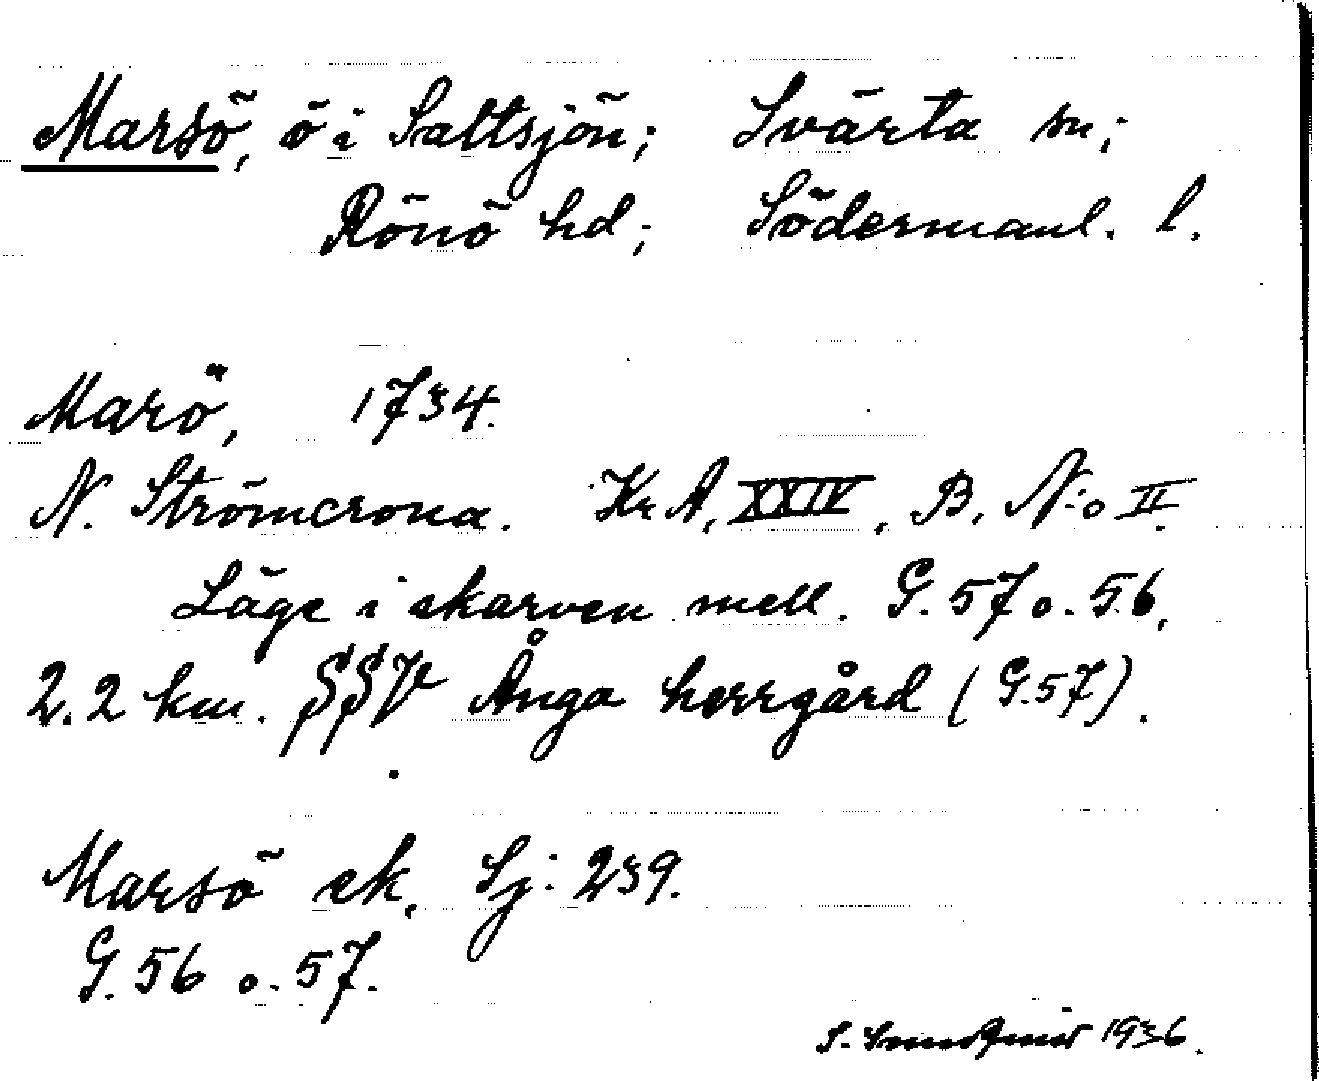 Marsö, ö i Saltsjön; Svärta sn;
Rönö hd; Södermanl. l.
Marö, 1734.
N. Strömcrona. Kr A, XXIV, B, N:o II.
Läge i skarven mell. G. 57 o. 56,
2.2 km. SSV Ånga herrgård (G.57).
Marsö ek. Sj: 239.
G. 56 o. 57.
S. 1936.